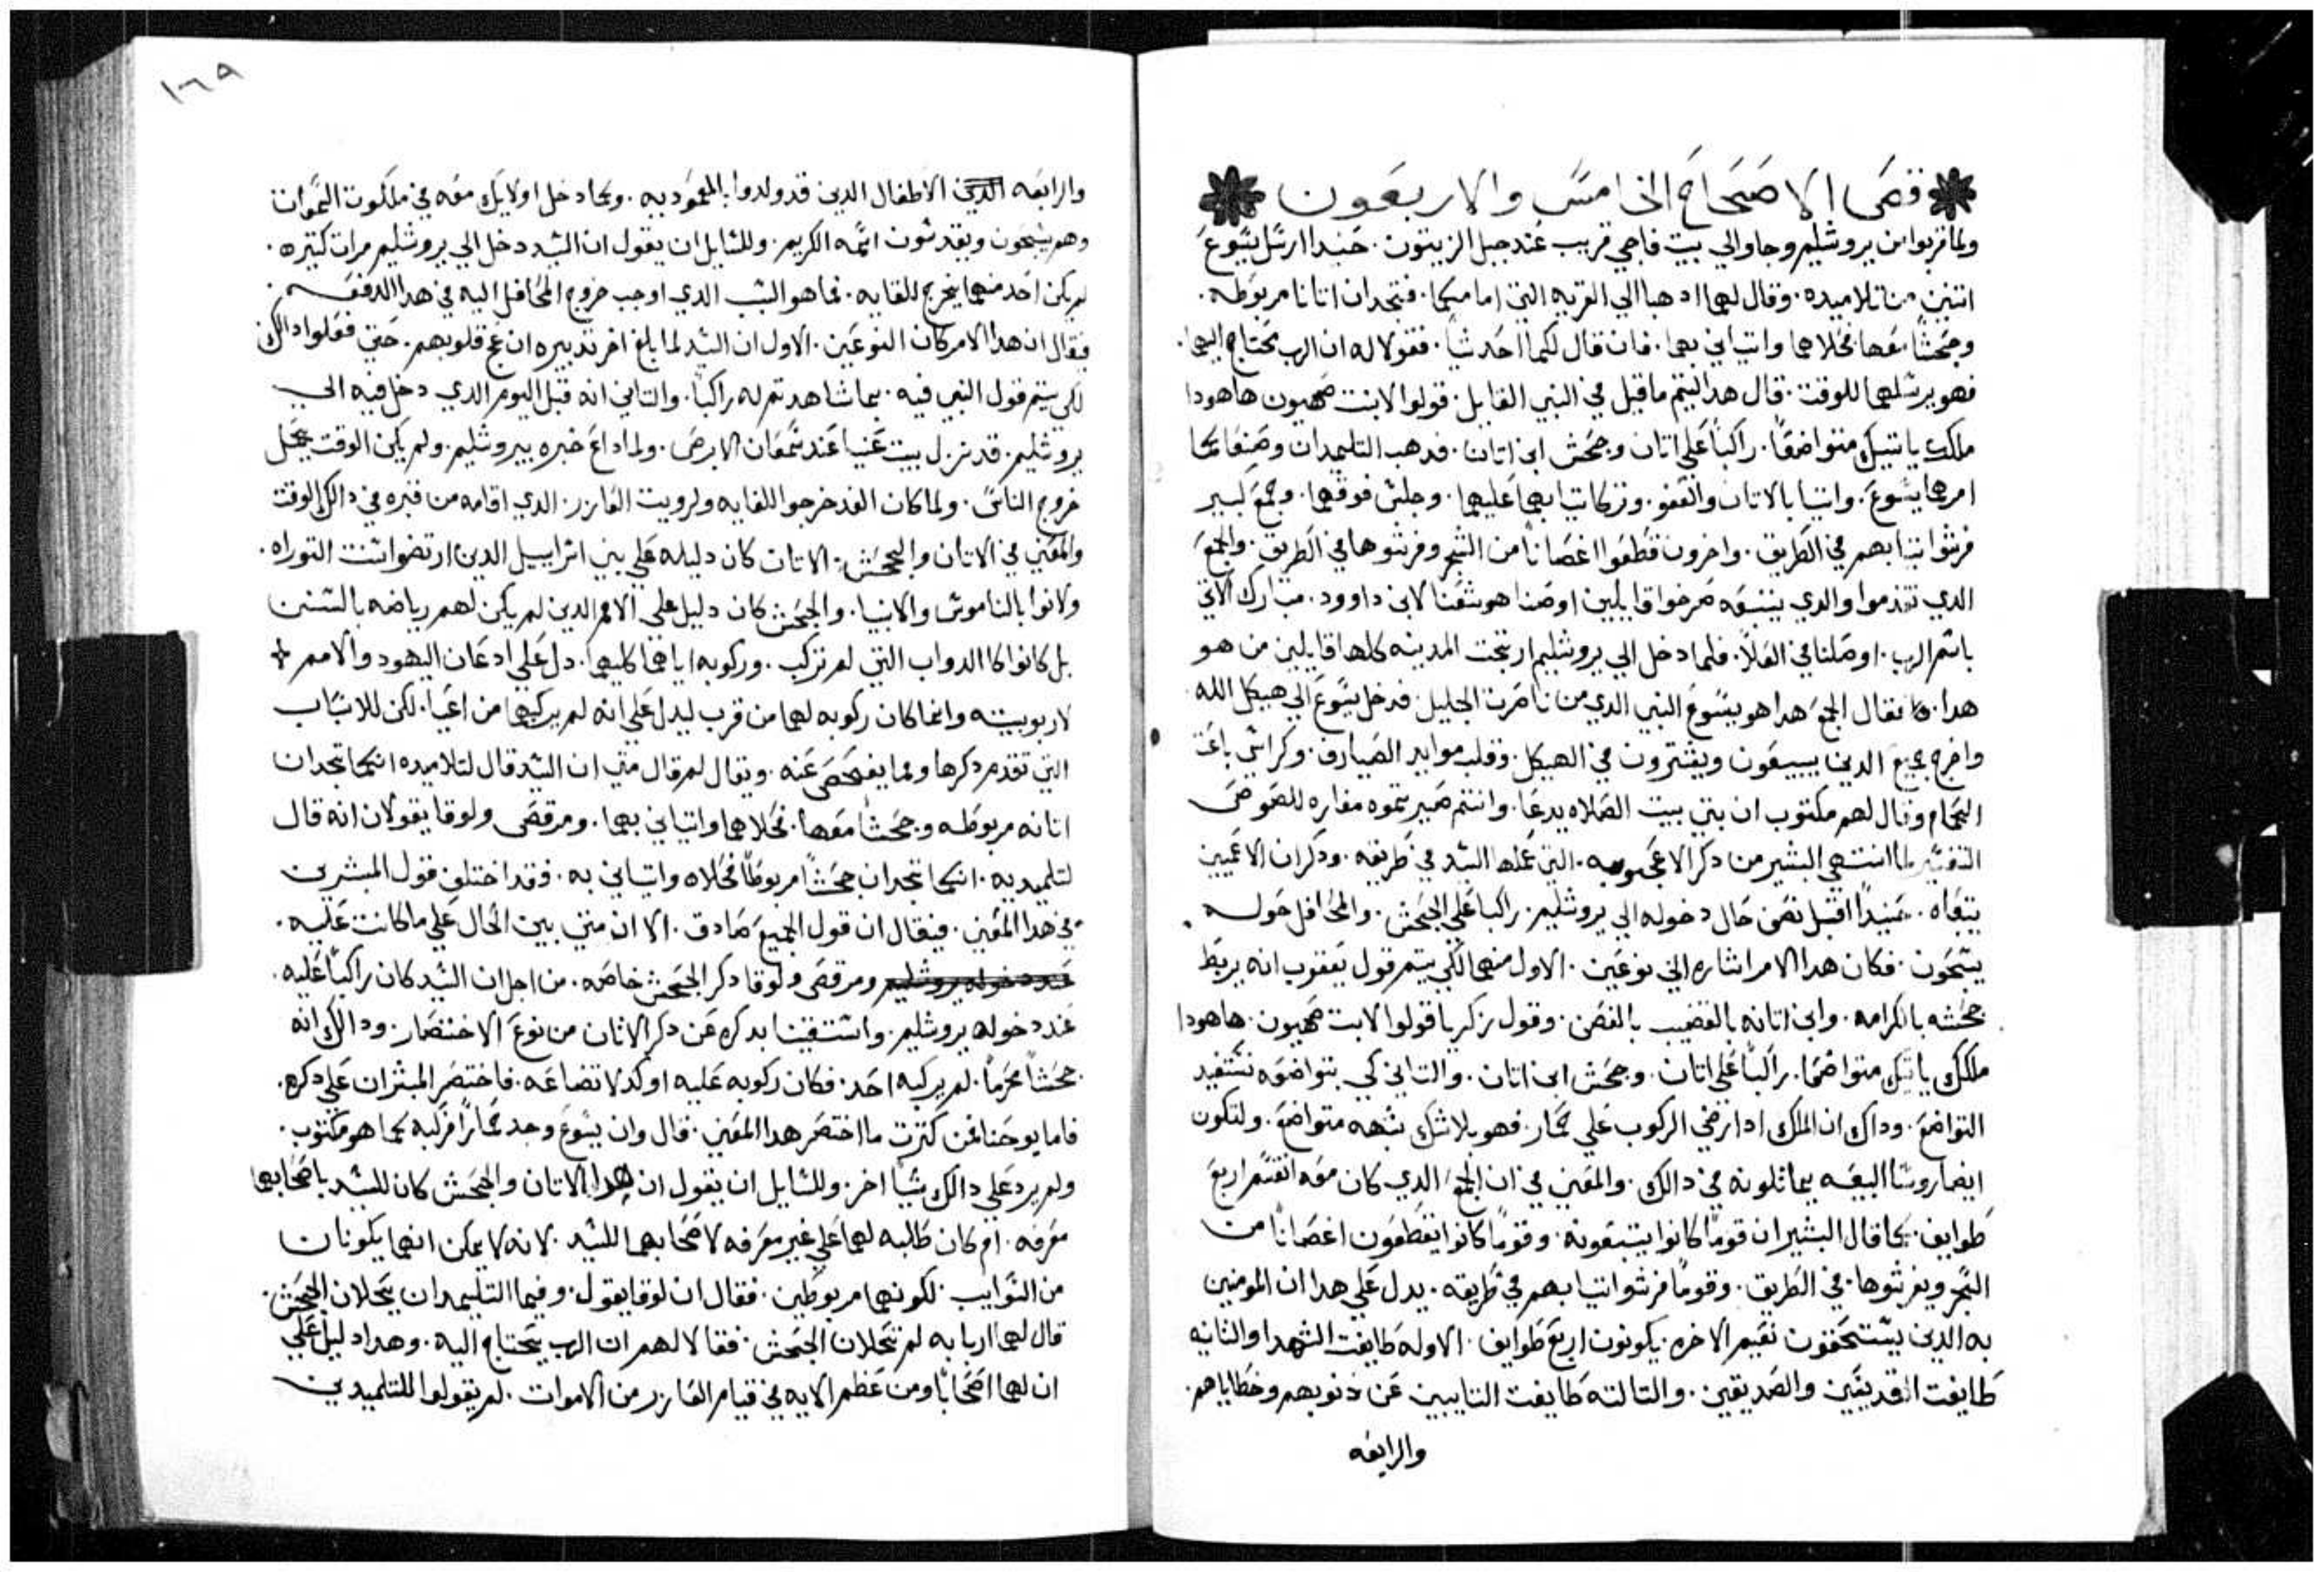 فص الاصحاح الخامس والاربعون
ولما قربوا من يروشليم وجاوا الي بيت فاجي قريب عند جبل الزيتون. حنيدا ارسل يسوع
اتنين من تلاميده. وقال لهما ادهبا الي القريه التي امامكما. فتجدان اتانا مربوطه.
وجحشا معها فحلاهما واتياني بهما. فان قال لكما احد شيا. فقولا له ان الرب يحتاج اليهما.
فهو يرسلهما للوقت. قال هدا ليتم ما قيل في النبي القايل. قولوا لابنت صهيون هاهودا
ملكك ياتيك متواضعا. راكبا علي اتان وجحش ابن اتان. فدهب التلميدان وصنعا كما
امرهما يسوع. واتيا بالاتان والعفو. وتركا تيابهما عليهما. وجلس فوقهما. وجمع كبير
فرشوا تيابهم في الطريق. واخرون قطعوا اغصانا من الشجر وفرشوها في الطريق. والجمع
الدي تقدموا والدي يتبعه صرخوا قايلين اوصنا هوشعنا لابن داوود. مبارك الاتي
باسم الرب. اوصلنا في العلا. فلما دخل الي يروشليم ارتجت المدينه كلها قايلين من هو
هدا. فقال الجمع هدا هو يسوع النبي الدي من ناصرت الجليل. فدخل يسوع الي هيكل الله.
واخرج جميع الدين يبيعون ويشترون في الهيكل. وقلب موايد الصيارف. وكراسي باعت
الحمام وقال لهم مكتوب ان بيتي بيت الصلاه يدعا. وانتم صيرتموه مغاره للصوص
التفسير لما انتهي البشير من دكر الاعجوبه. التي عملها السيد في طريقه. ودكر ان الاعميين
يتبعاه. حنيدا اقبل نص حال دخوله الي يروشليم. راكبا علي الجحش. والمحافل حوله
يسبحون. فكان هدا الامر اشاره الي نوعين. الاول منهما لكي يتم قول يعقوب انه يربط
جحشه بالكرامه. وابن اتانه بالقضيب بالغصن. وقول زكريا قولوا لابت صهيون. هاهودا
ملكك ياتيك متواضعا. راكبا علي اتان. وجحش ابن اتان. والتاني كي بتواضعه نستفيد
التواضع. وداك ان الملك ادا رضي الركوب علي حمار. فهو بلا شك يشبه متواضع. ولتكون
ايضا روسا البيعه يماتلونه في دالك. والمعني في ان الجمع الدي كان معه انقسم اربع
طوايف. كما قال البشير ان قوما كانوا يتبعونه. وقوما كانوا يقطعون اغصانا من
الشجر ويفرشوها في الطريق. وقوما فرشوا تيابهم في طريقه. يدل علي هدا ان المومنين
به الدين يستحقون نعيم الاخره. يكونون اربع طوايف. الاوله طايفت الشهدا والتانيه
طايفت القديسين والصديقين. والتالته طايفت التايبين عن دنوبهم وخطاياهم.
والرابعه
١٦٩
والرابعه الدين الاطفال الدين قد ولدوا بالمعموديه. وكما دخل اولايك معه في ملكوت السموات
وهم يسبحون ويقدسون اسمه الكريم. وللسايل ان يقول ان السيد دخل الي يروشليم مرات كتيره.
لم يكن احد منهما يخرج للقايه. فما هو السبب الدي اوجب خروج المحافل اليه في هدا الدفعه.
فيقال ان هدا الامر كان لنوعين. الاول ان السيد لما بلغ اخر تدبيره قلوبهم. حتي فعلوا دالك
لكي يتم قول النبي فيه. بما شاهدتم له راكبا. والتاني انه قبل اليوم الدي دخل فيه الي
يروشليم. قد نزل بيت عنيا عند سمعان الابرص. ولما اداع خبره بيروشليم. ولم يكن الوقت يجمل
خروج الناس. ولما كان الغد خرجوا للقايه ولرويت العازر. الدي اقامه من قبره في دالك الوقت
والمعني في الاتان والجحش. الاتان كان دليله علي بني اسراييل الدين ارتضوا سنت التوراه.
ولانوا بالناموس والانبيا. والجحش كان دليل علي الامم الدين لم يكن لهم رياضه بالسنن
بل كانوا كالدواب التي لم تركب. وركوبه اياهما كليهما. دل علي ادعان اليهود والامم
لاربوبيته وانما كان ركوبه لهما من قرب ليدل علي انه لم يركبهما من اعيا. لكن للاسباب
التي تقدم دكرها ومما يفحص عنه. ويقال لم قال متي ان السيد قال لتلاميده انكما تجدان
اتانه مربوطه وجحشا معها. فحلاهما واتياني بهما. ومرقص ولوقا يقولان انه قال
لتلميديه. انكما تجدان جحشا مربوطا فحلاه واتياني به. فقد اختلف قول المبشرين
في هدا المعني. فيقال ان قول الجميع صادق. الا ان متي بين الحال علي ما كانت عليه.
عند دخوله يروشليم ومرقص ولوقا دكر الجحش خاصه. من اجل ان السيد كان راكبا عليه.
عند دخوله يروشليم. واستغنيا بدكره عن دكر الاتان من نوع الاختصار. ودالك انه
جحشا محرما. لم يركبه احد. فكان ركوبه عليه اوكد لاتضاعه. فاختصر المبشران علي دكره.
فاما يوحنا فمن كترت ما اختصر هدا المعني. قال وان يسوع وجد حمارا فركبه كما هو مكتوب.
ولم يرد علي دالك شيا اخر. وللسايل ان يقول ان هدا الاتان والجحش كان للسيد باصحابهما
معرفه. ام كان طلبه لهما علي غير معرفه لاصحابهما للسيد. لانه لا يمكن انهما يكونان
من السوايب. لكونهما مربوطين. فقال ان لوقا يقول. وفيما التلميدان يحلان الجحش.
قال لهما اربابه لم تحلان الجحش. فقالا لهم ان الرب يحتاج اليه. وهدا دليل علي
ان لهما اصحابا ومن عظم الايه في قيام العازر من الاموات. لم يقولوا للتلميدين